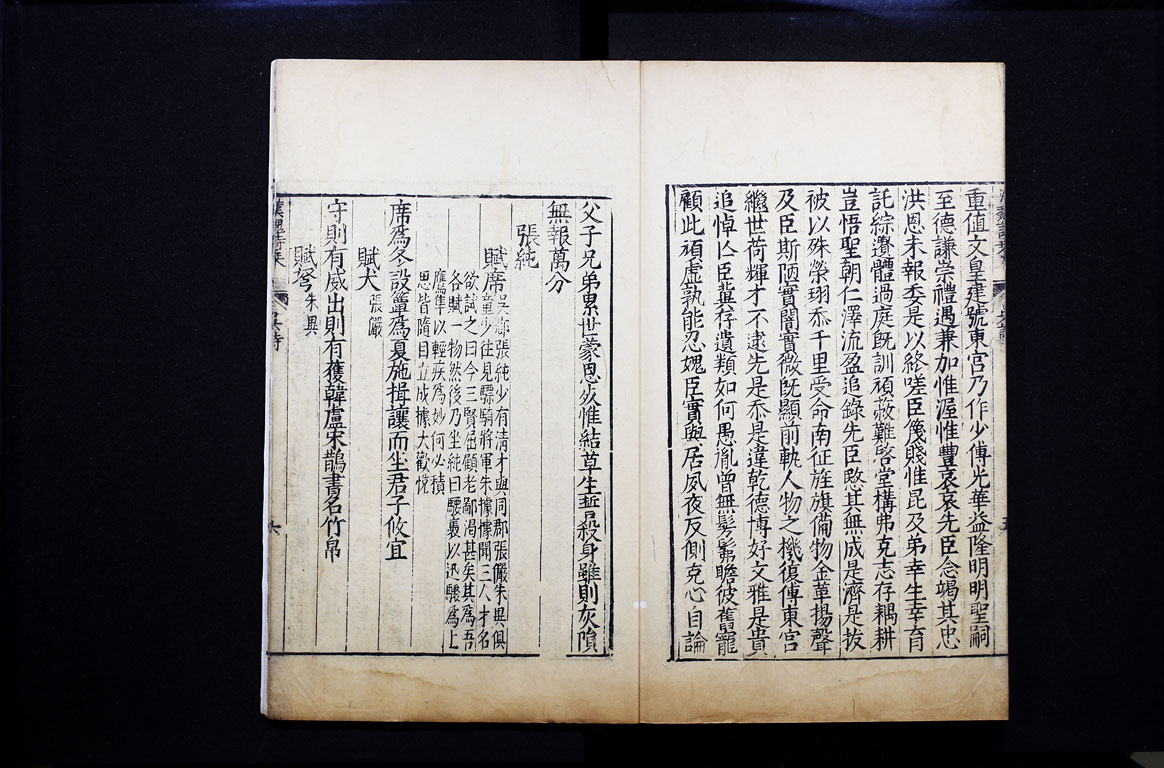 重值文皇建號東宮乃作少傅光華益隆明明聖嗣
至德謙崇禮遇兼加惟渥惟豐哀哀先臣念竭其忠
洪恩未報委是以終嗟臣篾賤惟昆及弟幸生幸育
託綜遺體過庭旣訓頑蔽難啓堂構弗克志存耦耕
豈悟聖朝仁澤流盈追錄先臣愍其無成是濟是拔
被以殊榮珝忝千里受命南征旌旗備物金革揚聲
及臣斯陋實闇實微旣顯前軌人物之機復傅東宮
繼世荷輝才不逮先是忝是違乾德博好文雅是貴
追悼亾臣冀存遺類如何愚胤曾無髣髴瞻彼舊寵
顧此頑虛孰能忍媿臣實與居夙夜反側克心自論
父子兄弟累世蒙恩死惟結草生誓殺身雖則灰隕
無報萬分
張純
賦席 吳郡張純少有清才與同郡張儼朱異俱
童少往見驃騎將軍朱據據聞三人才名
欲試之曰今三賢屈顧老鄙渴甚矣其爲吾
各賦一物然後乃坐純曰騕褭以迅驟爲上
鷹隼以輕疾爲妙何必積
思皆隋目立成據大歡悅
席爲冬設簟爲夏施揖讓而坐君子攸宜
賦犬 張儼
守則有威出則有獲韓盧宋鵲書名竹帛
賦弩 朱異
吳詩
六